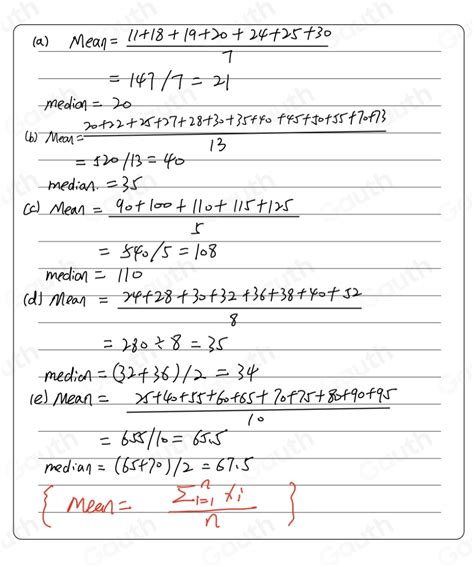 (a) Mean = 11+18+19+20+24+25+30
7
= 147/7 = 21
median = 20
(b) Mean = 20+22+25+27+28+30+35+40+45+50+55+70+73
13
= 520/13 = 40
median. = 35
(c) Mean = 90+100+110+115+125
5
= 540/5 = 108
median = 110
(d) Mean = 24+28+30+32+36+38+40+52
8
= 280÷8 = 35
median = (32+36)/2 = 34
(e) Mean = 25+40+55+60+65+70+75+80+90+95
10
= 655/10 = 65.5
median = (65+70)/2 = 67.5
{ Mean = Σⁿᵢ₌₁ xᵢ }
n
Gauth